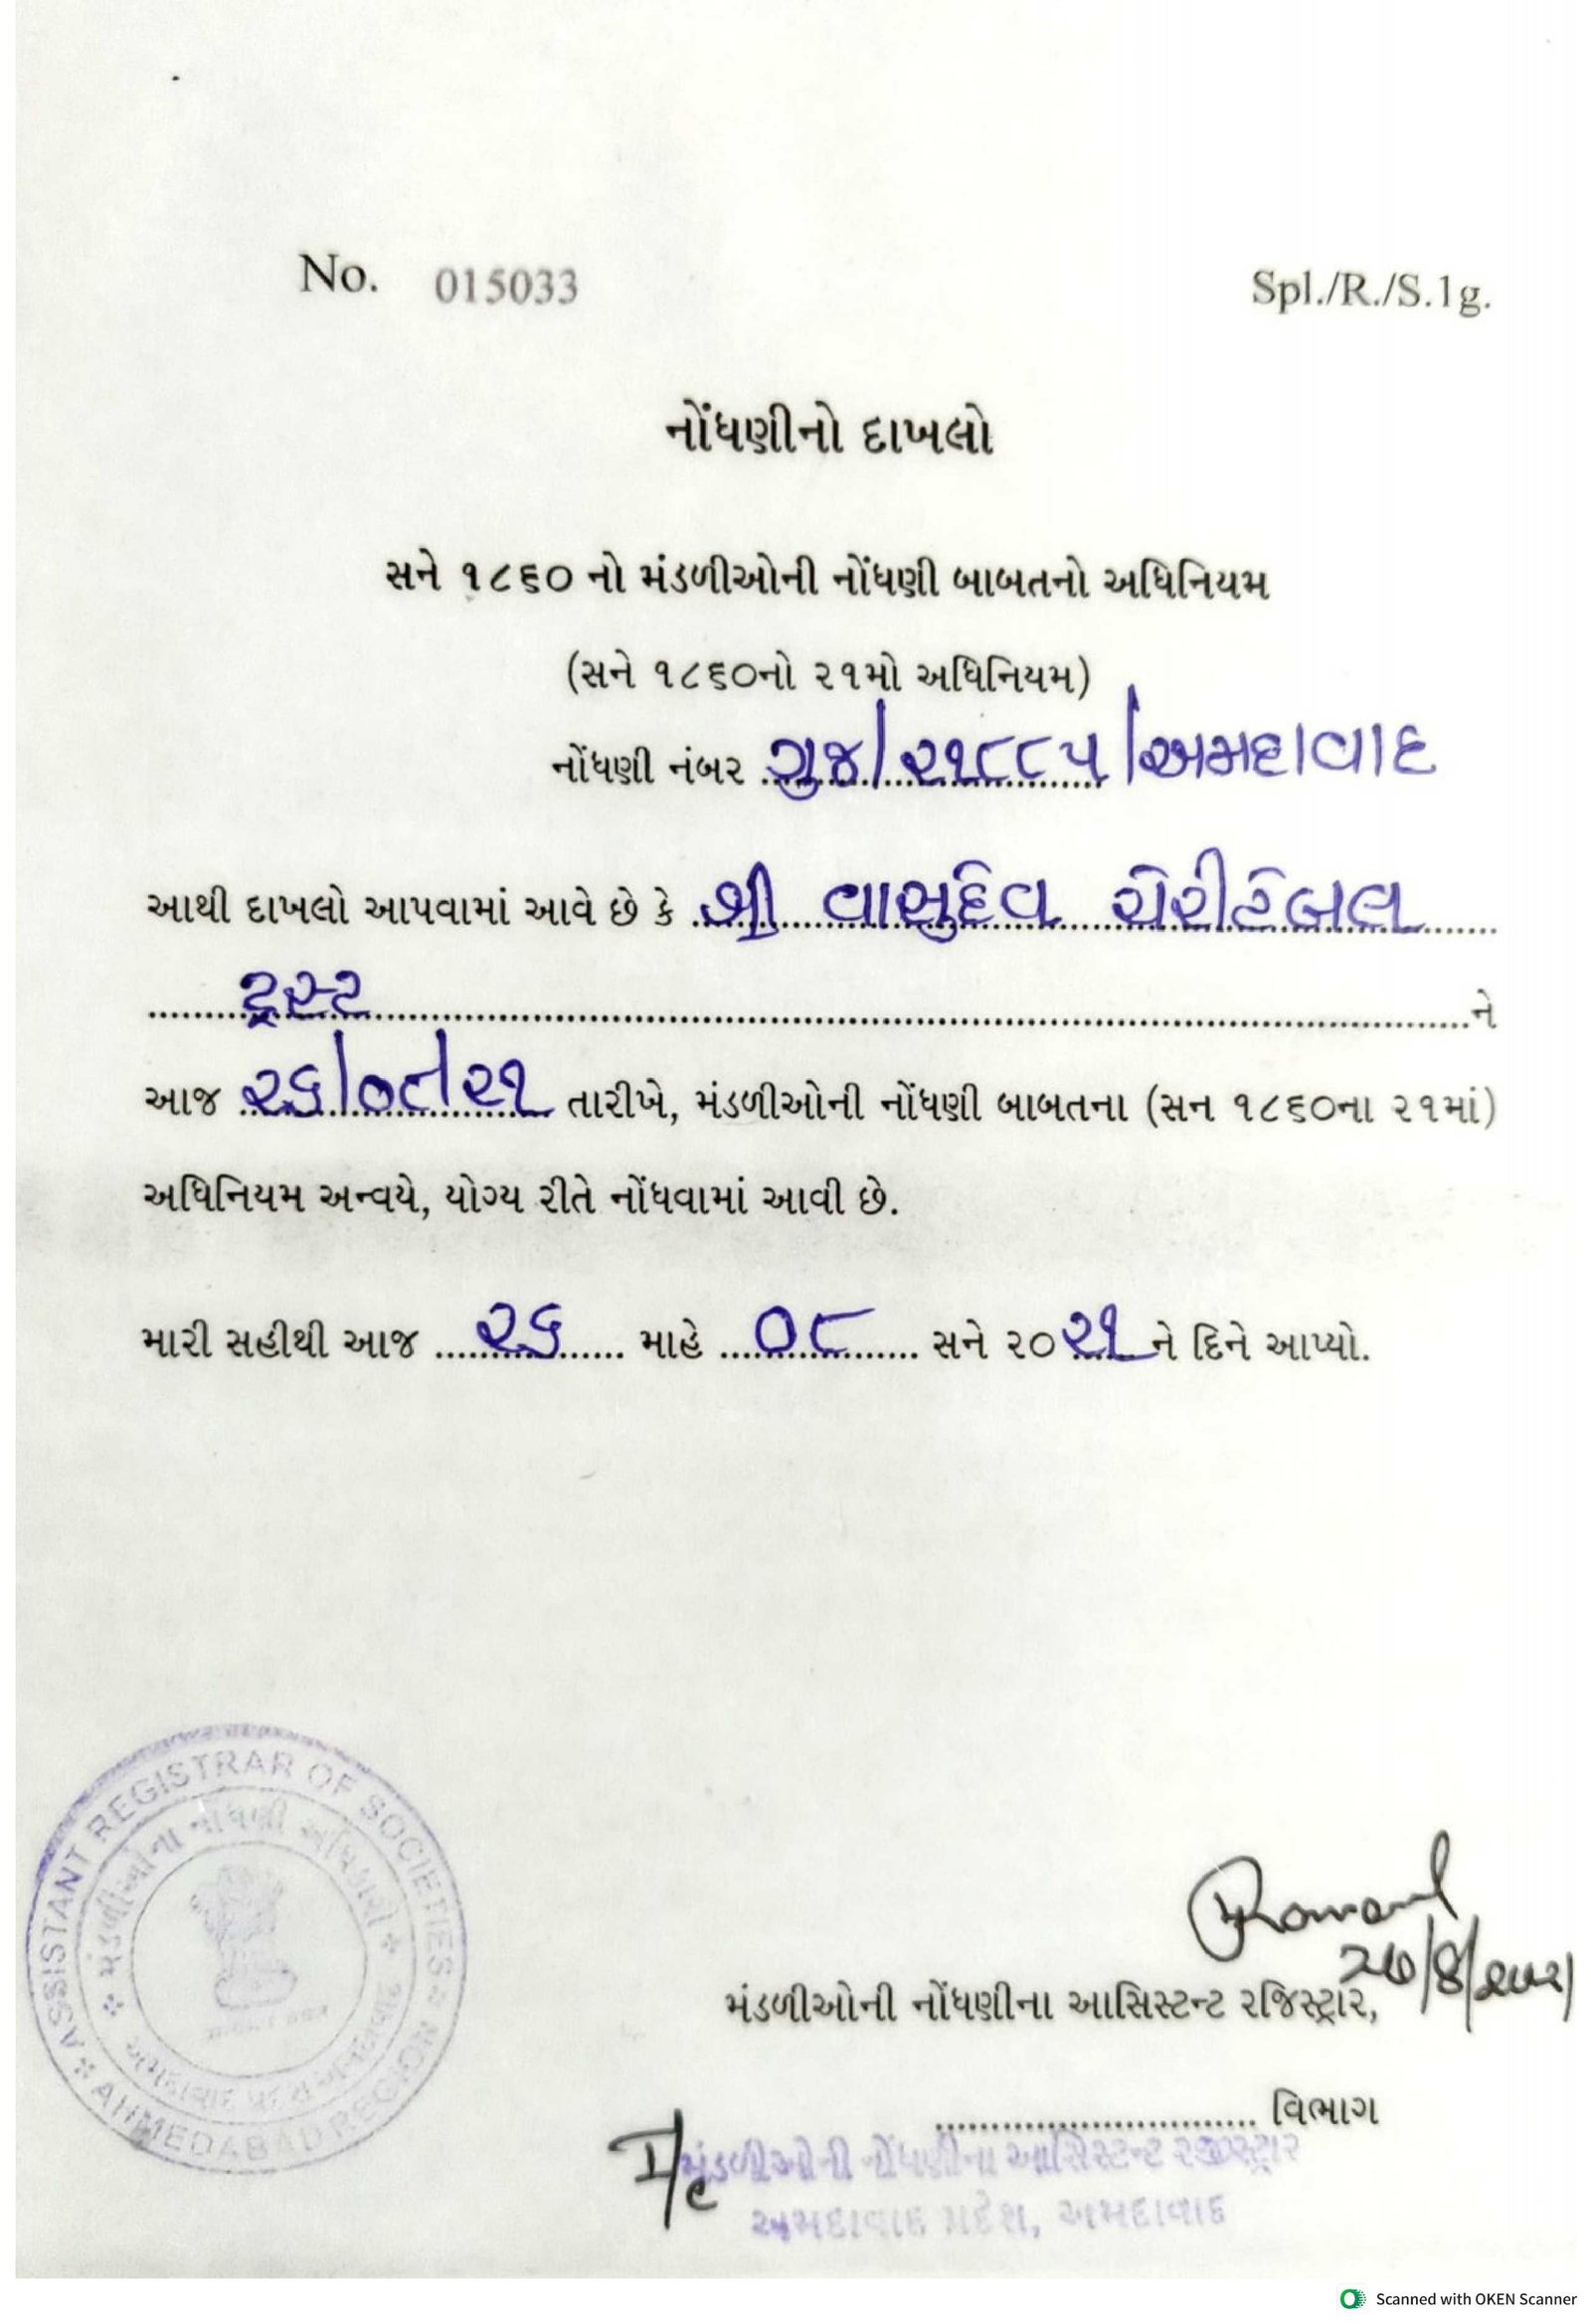 No. 015033 Spl./R./S.1g.
નોંધણીનો દાખલો
સને ૧૮૬૦ નો મંડળીઓની નોંધણી બાબતનો અધિનિયમ
(સને ૧૮૬૦નો ૨૧મો અધિનિયમ)
નોંધણી નંબર ગુજ/૨૧૮૮૫/અમદાવાદ
આથી દાખલો આપવામાં આવે છે કે શ્રી વાસુદેવ ચેરીટેબલ
ટ્રસ્ટ ને
આજ ૨૬/૦૮/૨૧ તારીખે, મંડળીઓની નોંધણી બાબતના (સન ૧૮૬૦ના ૨૧માં)
અધિનિયમ અન્વયે, યોગ્ય રીતે નોંધવામાં આવી છે.
મારી સહીથી આજ ૨૬ માહે ૦૮ સને ૨૦૨૧ ને દિને આપ્યો.
ASSISTANT REGISTRAR OF SOCIETIES
મંડળીઓના નોંધણી અધિકારી
AHMEDABAD REGION
મંડળીઓની નોંધણીના આસિસ્ટન્ટ રજિસ્ટ્રાર,
વિભાગ
I/c મંડળીઓની નોંધણીના આસિસ્ટન્ટ રજીસ્ટ્રાર
અમદાવાદ પ્રદેશ, અમદાવાદ
Scanned with OKEN Scanner